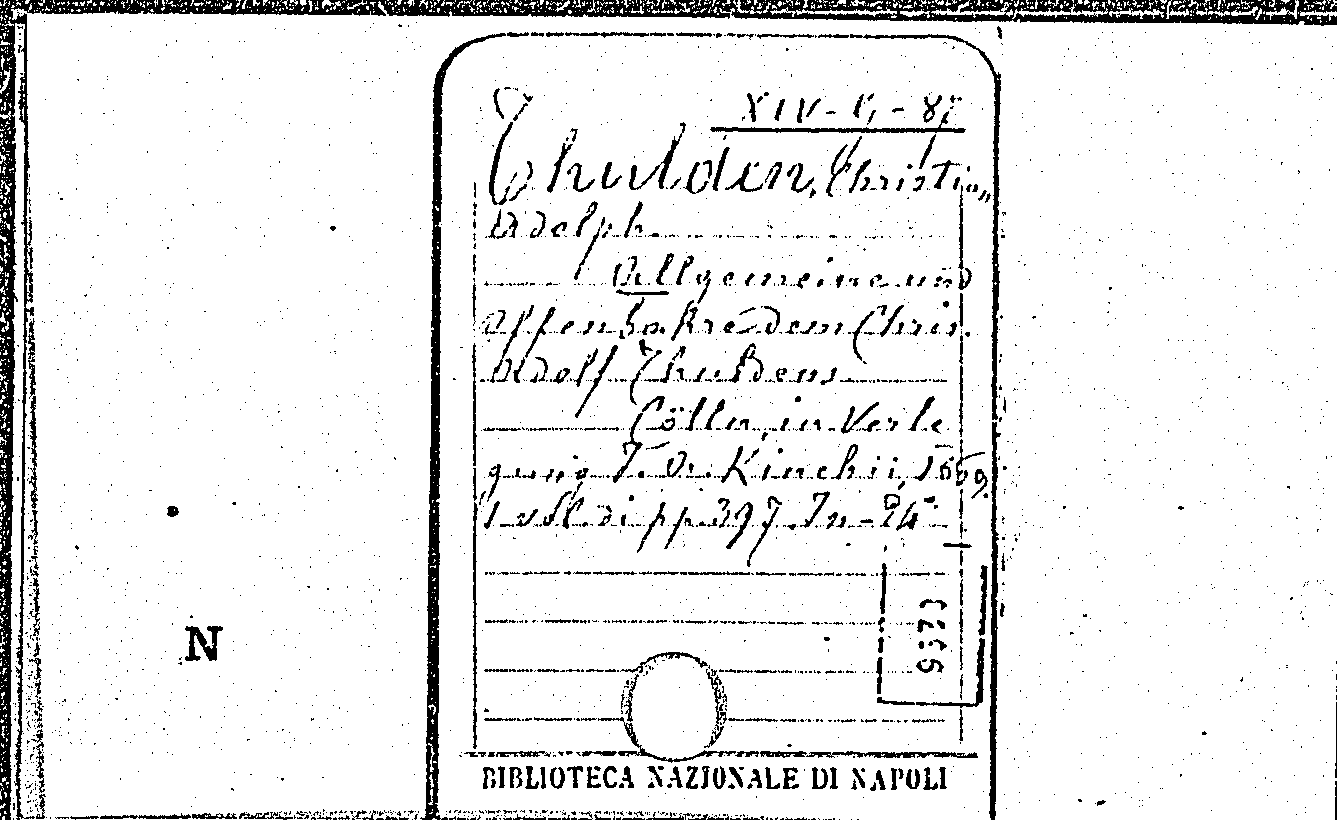 XIV-G-87
Thulden, Christian
Adolph.
Allgemeine und
offenbahre dem Chris.
Adolf Thuldens
Cölln, in Verle
gung J. A. Kinchii, 1659.
1 vol. di pp. 397. In-24°
9373
N
BIBLIOTECA NAZIONALE DI NAPOLI